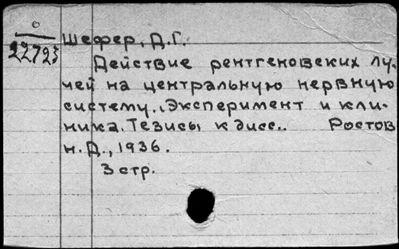 о
22723
Шефер, Д.Г.
Действие рентгеновских лу-
чей на центральную нервную
систему. Эксперимент и кли-
ника. Тезисы к дисс.. Ростов
н.Д., 1936.
3 стр.